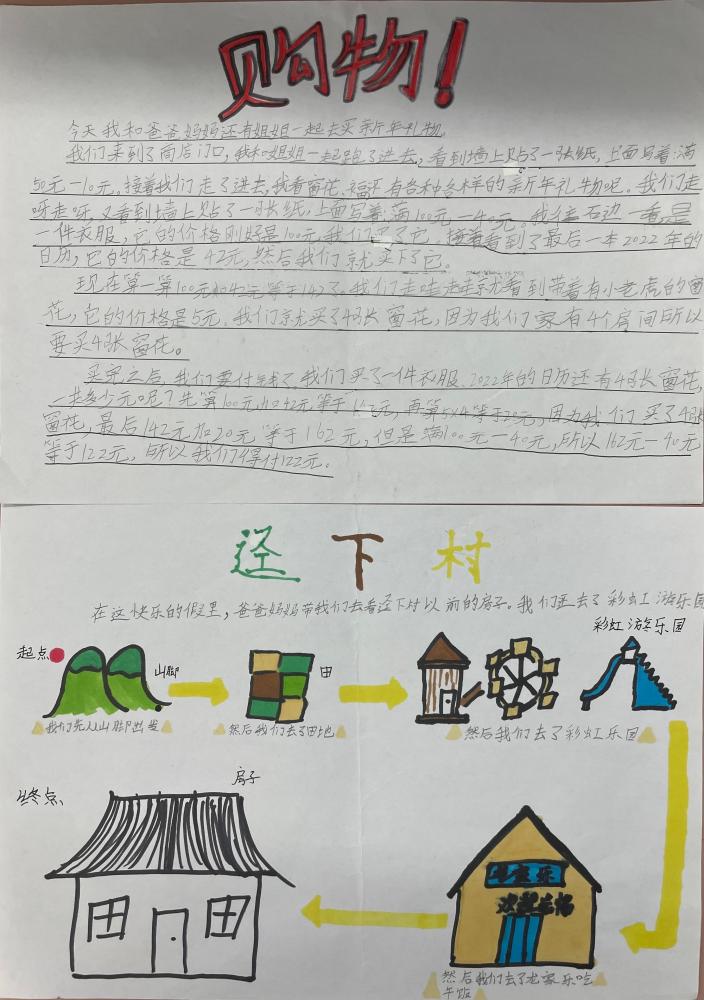 购物!
今天我和爸爸妈妈还有姐姐一起去买新年礼物
我们来到了商店门口,我和姐姐一起跑了进去,看到墙上贴了一张纸,上面写着:满
50元一10元。接着我们走了进去,我看窗花、福还有各种各样的新年礼物呢。我们走
呀走呀,又看到墙上贴了一张纸,上面写着:满100元一40元。我往右边一看,是
一件衣服,它的价格刚好是100元,我们买了它。接着看到了最后一本2022年的
日历,它的价格是42元,然后我们就买下了它。
现在算一算100元加42元等于142了。我们走哇走哇就看到带着有小老虎的窗
花,它的价格是5元,我们就买了4张窗花,因为我们家有4个房间所以
要买4张窗花。
买完之后,我们要付钱了,我们买了一件衣服、2022年的日历还有4张窗花,
一共多少元呢?先算100元加42元等于142元,再算5×4等于20元,因为我们买了4张
窗花,最后142元加20元等于162元,但是满100元一40元,所以162元一40元
等于122元,所以我们得付122元。
迳下村
在这快乐的假里,爸爸妈妈带我们去看迳下村以前的房子。我们还去了彩虹游乐园
彩虹游乐园
起点
山脚
田
我们先从山脚出发
然后我们去了田地
然后我们去了彩虹乐园
房子
终点
农家乐
欢迎光临
然后我们去了农家乐吃
午饭